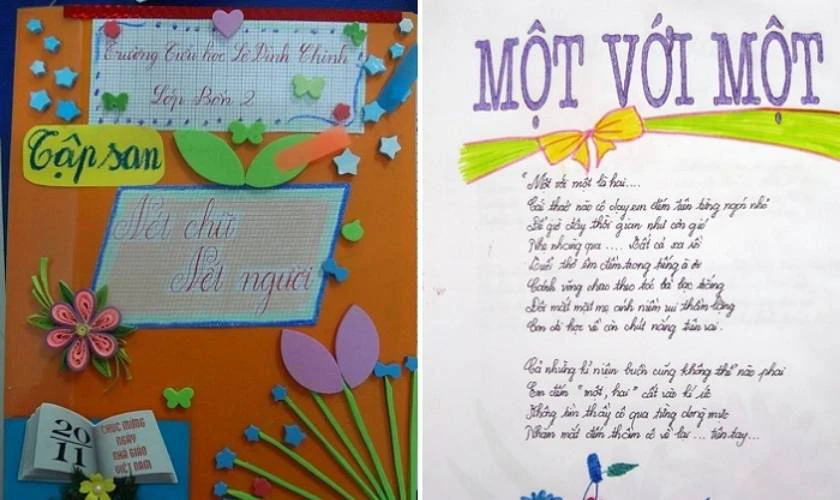 Trường Tiểu học Lê Đình Chinh
Lớp Bốn 2
Tập san
Nét chữ
Nét người
20
11
CHÚC MỪNG
NGÀY
NHÀ GIÁO
VIỆT NAM
MỘT VỚI MỘT
"Một với một là hai....
Cái thuở nào cô dạy em đếm trên từng ngón nhỏ
Để giờ đây thời gian như cơn gió
Nhẹ nhàng qua .... Tất cả xa rồi
Tuổi thơ êm đềm trong tiếng à ơi
Cánh võng chao theo tóc bà bạc trắng
Đôi mắt mẹ ánh niềm vui thầm lặng
Em đi học về còn chút nắng trên vai.
Cả những kỉ niệm buồn cũng không thể nào phai
Em đếm "một, hai" cất vào kí ức
Không tin thầy cô qua từng dòng mực
Nhắm mắt đếm thầm cô về lại ... trên tay...